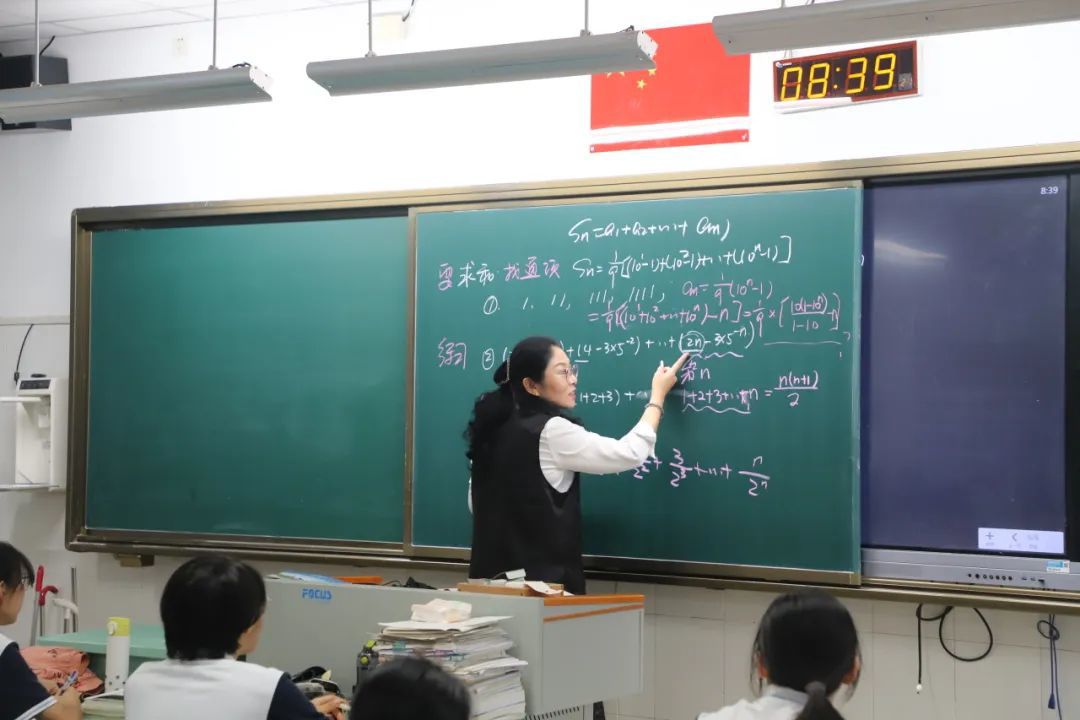 08:39
8:39
Sn=a1+a2+…+an
要求和·找通项 Sn=1/9[(10^1-1)+(10^2-1)+…+(10^n-1)]
①. 1, 11, 111, 1111, an=1/9(10^n-1)
=1/9[(10^1+10^2+…+10^n)-n]=1/9×[10(1-10^n)/1-10 -n]
练习 ② +(4-3×5^-2)+…+(2n-3×5^-n)
n
1+2+3)+ 1+2+3+…+n=n(n+1)/2
2^2+3/2^3+…+n/2^n
FOCUS